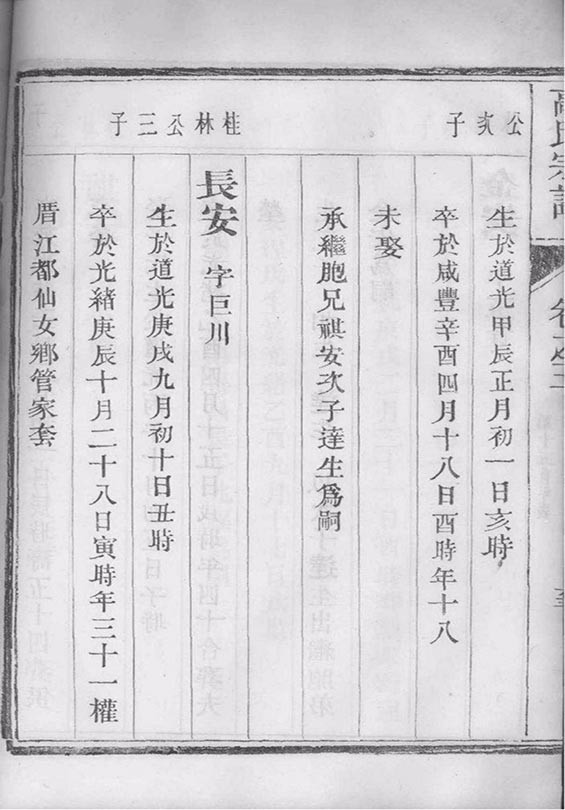 高氏宗譜
公次子
生於道光甲辰正月初一日亥時
卒於咸豐辛酉四月十八日酉時年十八
未娶
承繼胞兄祺安次子達生爲嗣
桂林公三子
長安 字巨川
生於道光庚戌九月初十日丑時
卒於光緒庚辰十月二十八日寅時年三十一權
厝江都仙女鄉管家套